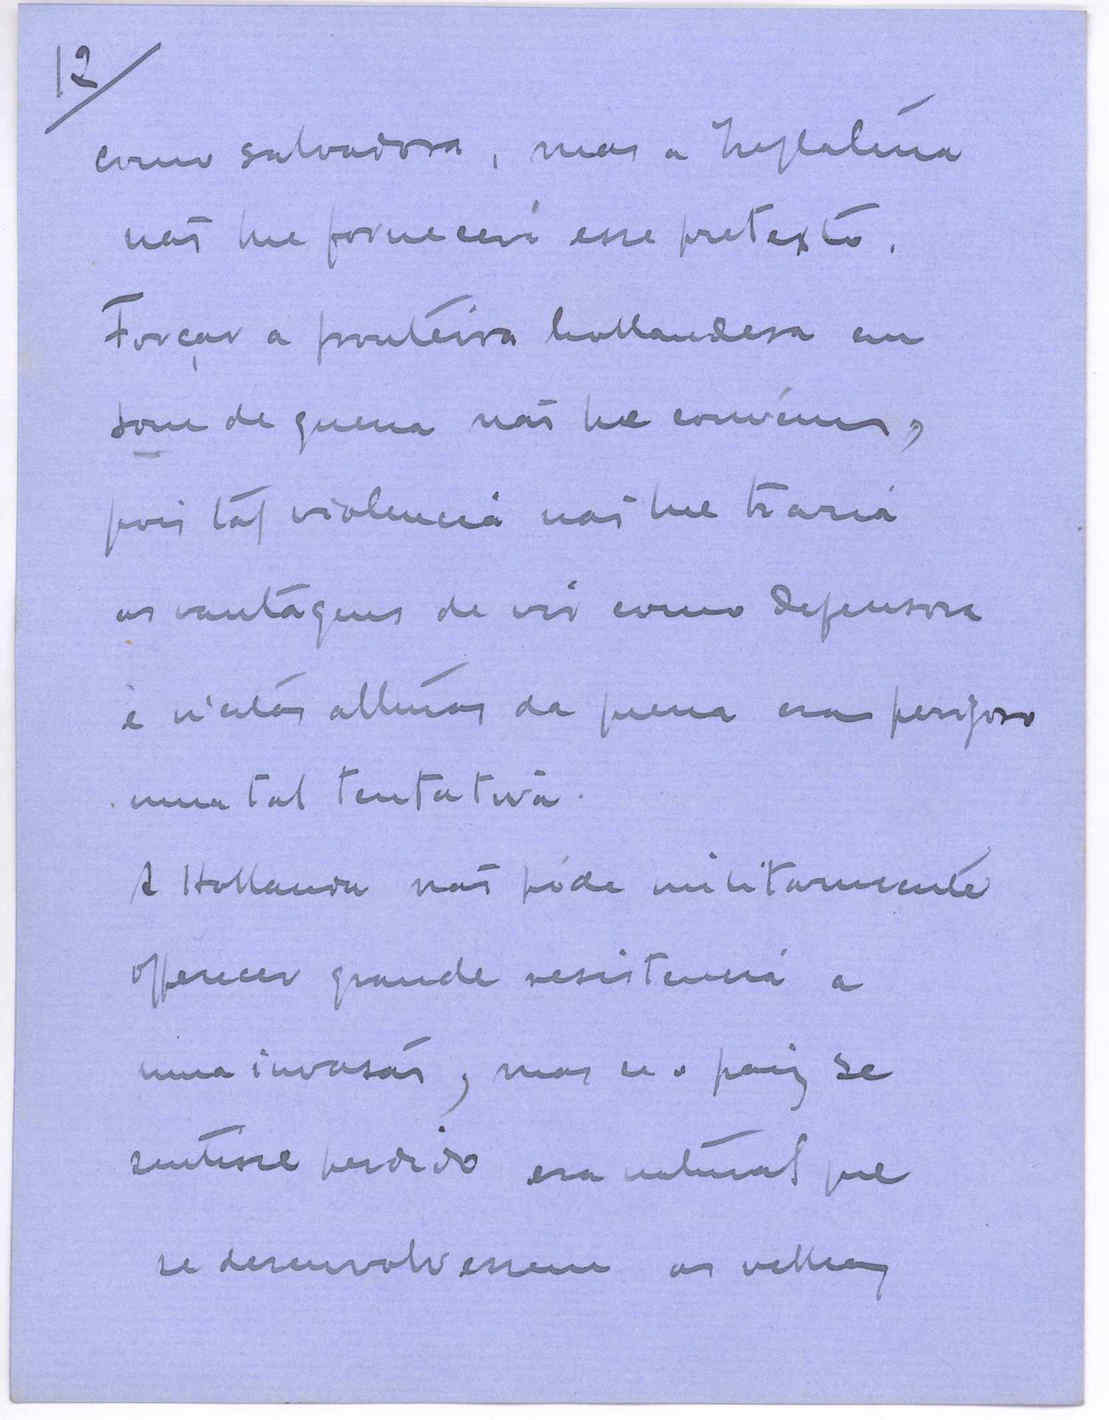 12
como salvadora, mas a Inglaterra
não lhe fornecerá esse pretexto.
Forçar a fronteira hollandesa em
som de guerra não lhe convem,
pois tal violencia não lhe traria
as vantagens de vir como defensora
e n'estas da guerra era perigoso
uma tal tentativa.
A Hollanda não póde militarmente
offerecer grande resistencia a
uma invasão, mas se o paiz se
sentisse perdido era natural que
se desenvolvessem as velhas